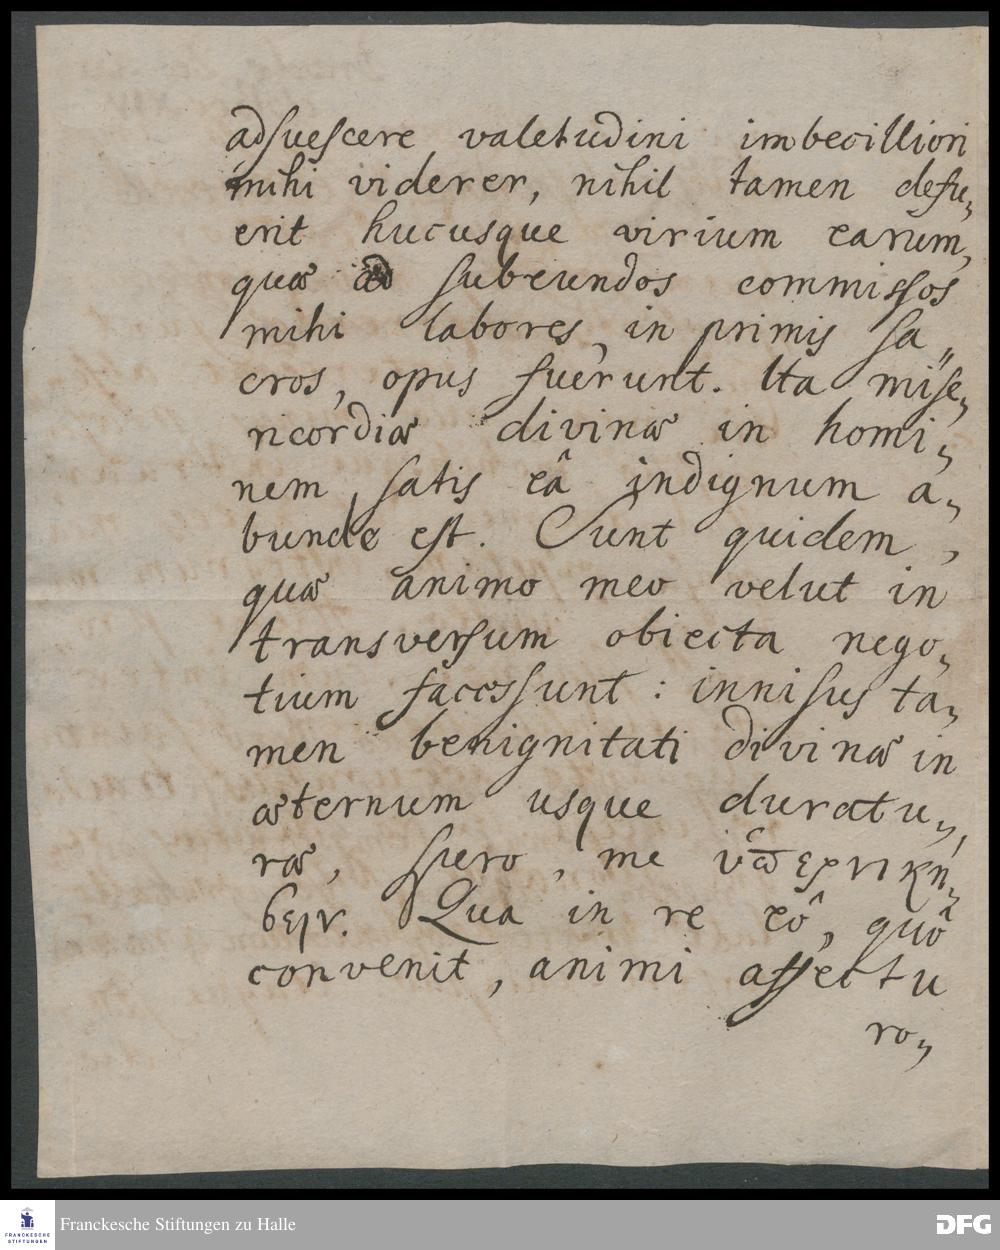 adsuescere valetudini imbecilliori
mihi viderer, nihil tamen defu„
erit hucusque virium earum,
quæ ad subeundos commissos
mihi labores, in primis sa„
cros, opus fuerunt. Ita mise„
ricordiæ divinæ in homi„
nem, satis eâ indignum a„
bunde est. Sunt quidem,
quæ animo meo velut in
transversum obiecta nego„
tium facessunt: innisus ta„
men benignitati divinæ in
æternum usque duratu„
ræ, spero, me ὑπερνική„
σειν. Qua in re eô, quô
convenit, animi affectu
ro„
FRANCKESCHE STIFTUNGEN
Franckesche Stiftungen zu Halle
DFG